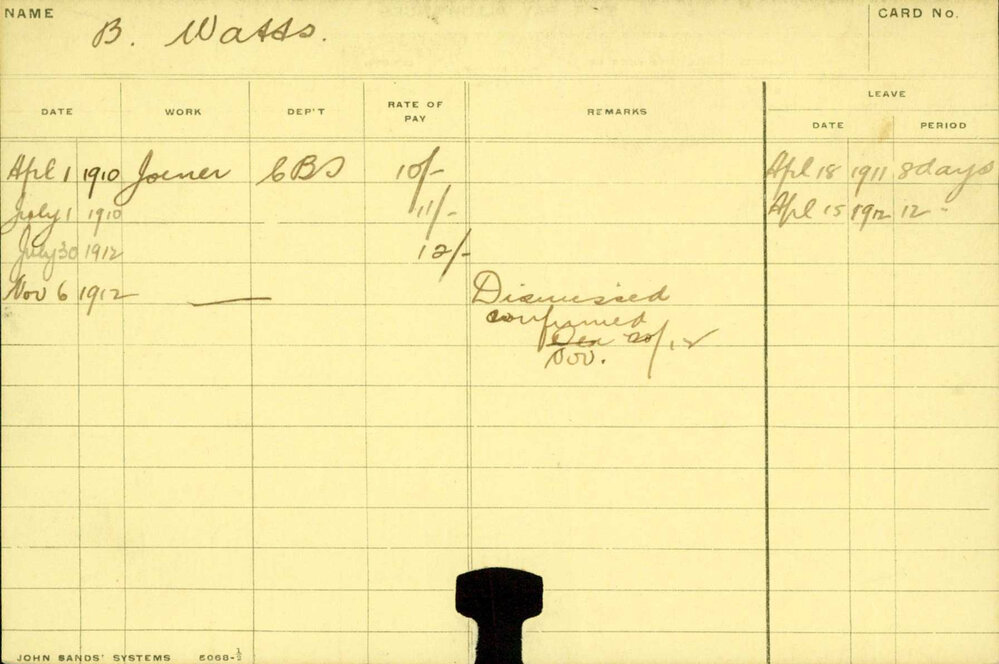 NAME B. Watts. CARD No.
LEAVE
DATE WORK DEP'T RATE OF PAY REMARKS DATE PERIOD
Apl 1 1910 Joiner CBS 10/- Apl 18 1911 8 days
July 1 1910 11/- Apl 15 1912 12 -
July 30 1912 12/-
Nov 6 1912 — Dismissed
confirmed
Dec 20/12
Nov.
JOHN SANDS' SYSTEMS 5068-½